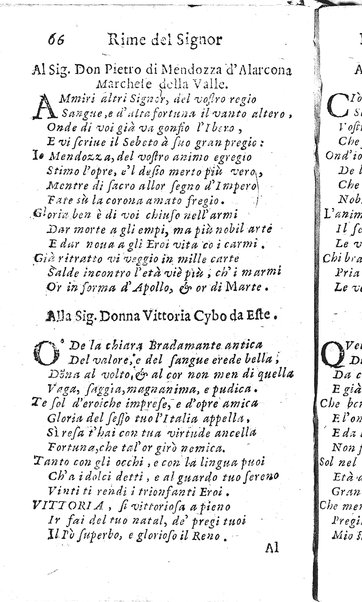 66 Rime del Signor
Al Sig. Don Pietro di Mendozza d'Alarcona
Marchese della Valle.
AMmiri altri Signor, del vostro regio
Sangue, e d'alta fortuna il vanto altero,
Onde di voi già và gonfio l'Ibero,
E vi scriue il Sebeto à suo gran pregio:
Io Mendozza, del vostro animo egregio
Stimo l'opre, e'l desio merto più vero,
Mentre di sacro allor segno d'Impero
Fate sù la corona amato fregio.
Gloria ben è di voi chiuso nell'armi
Dar morte a gli empi, ma più nobil arte
E dar noua a gli Eroi vita co i carmi.
Già ritratto vi veggio in mille carte
Salde incontro l'età viè più; ch'i marmi
Or in forma d'Apollo, & or di Marte.
Alla Sig. Donna Vittoria Cybo da Este.
O' De la chiara Bradamante antica
Del valore, e del sangue erede bella,
Dōna al volto, & al cor non men di quella
Vaga, saggia, magnanima, e pudica.
Te sol d'eroiche imprese, e d'opre amica
Gloria del sesso tuo l'Italia appella,
Sì resa t'hai con tua virtude ancella
Fortuna, che tal'or girò nemica.
Tanto con gli occhi, e con la lingua puoi
Ch'a i dolci detti, e al guardo tuo sereno
Vinti ti rendi i trionfanti Eroi.
VITTORIA, sì vittoriosa a pieno
Ir fai del tuo natal, de' pregi tuoi
Il Pò superbo, e glorioso il Reno.
Al